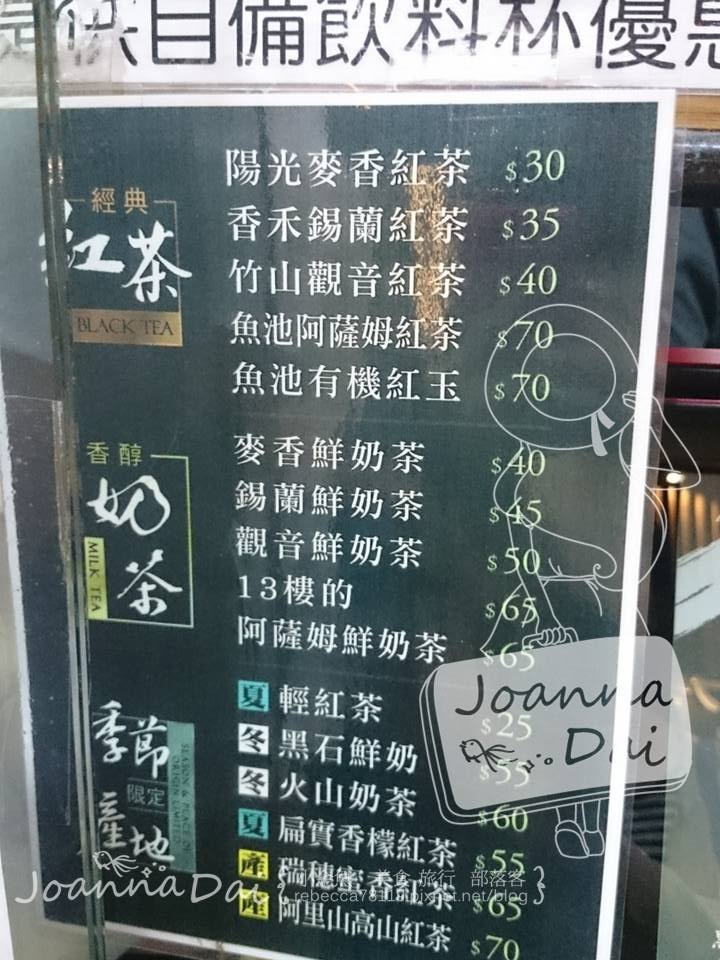 提供自備飲料杯優惠
經典
紅茶
BLACK TEA
陽光麥香紅茶 $30
香禾錫蘭紅茶 $35
竹山觀音紅茶 $40
魚池阿薩姆紅茶 $70
魚池有機紅玉 $70
香醇
奶茶
MILK TEA
麥香鮮奶茶 $40
錫蘭鮮奶茶 $45
觀音鮮奶茶 $50
13樓的 $65
阿薩姆鮮奶茶 $65
季節
限定
產地
SEASON & PLACE OF
ORIGIN LIMITED
夏 輕紅茶 $25
冬 黑石鮮奶 $55
冬 火山奶茶 $60
夏 扁實香檬紅茶 $55
產 瑞穗蜜香紅茶 $65
產 阿里山高山紅茶 $70
Joanna
Dai
JoannaDai
美食 旅行 部落客
rebecca78118.pixnet.net/blog